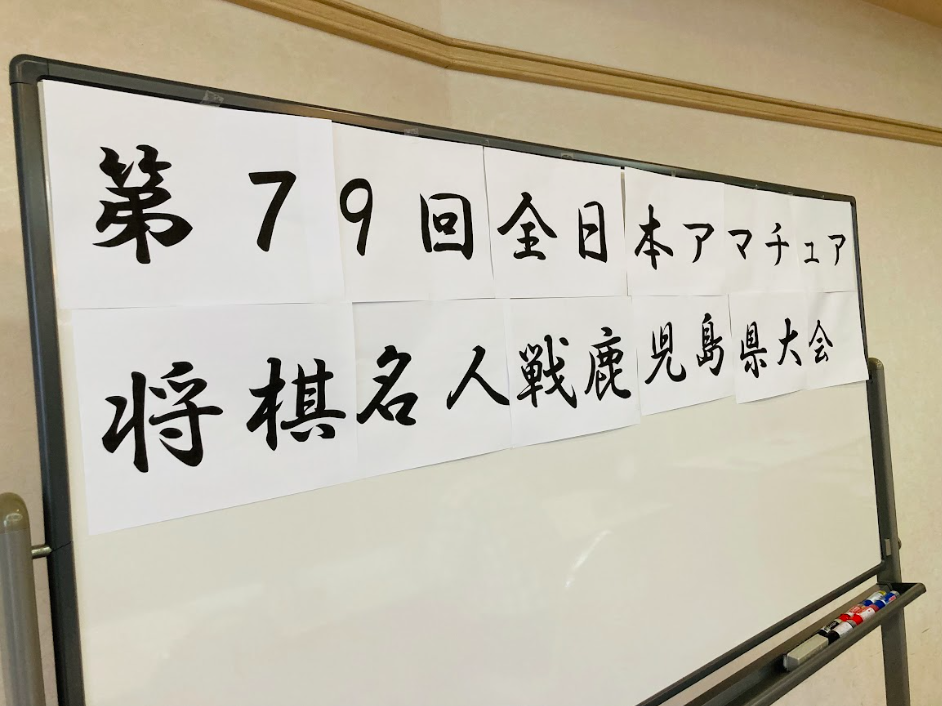 第79回全日本アマチュア
将棋名人戦鹿児島県大会